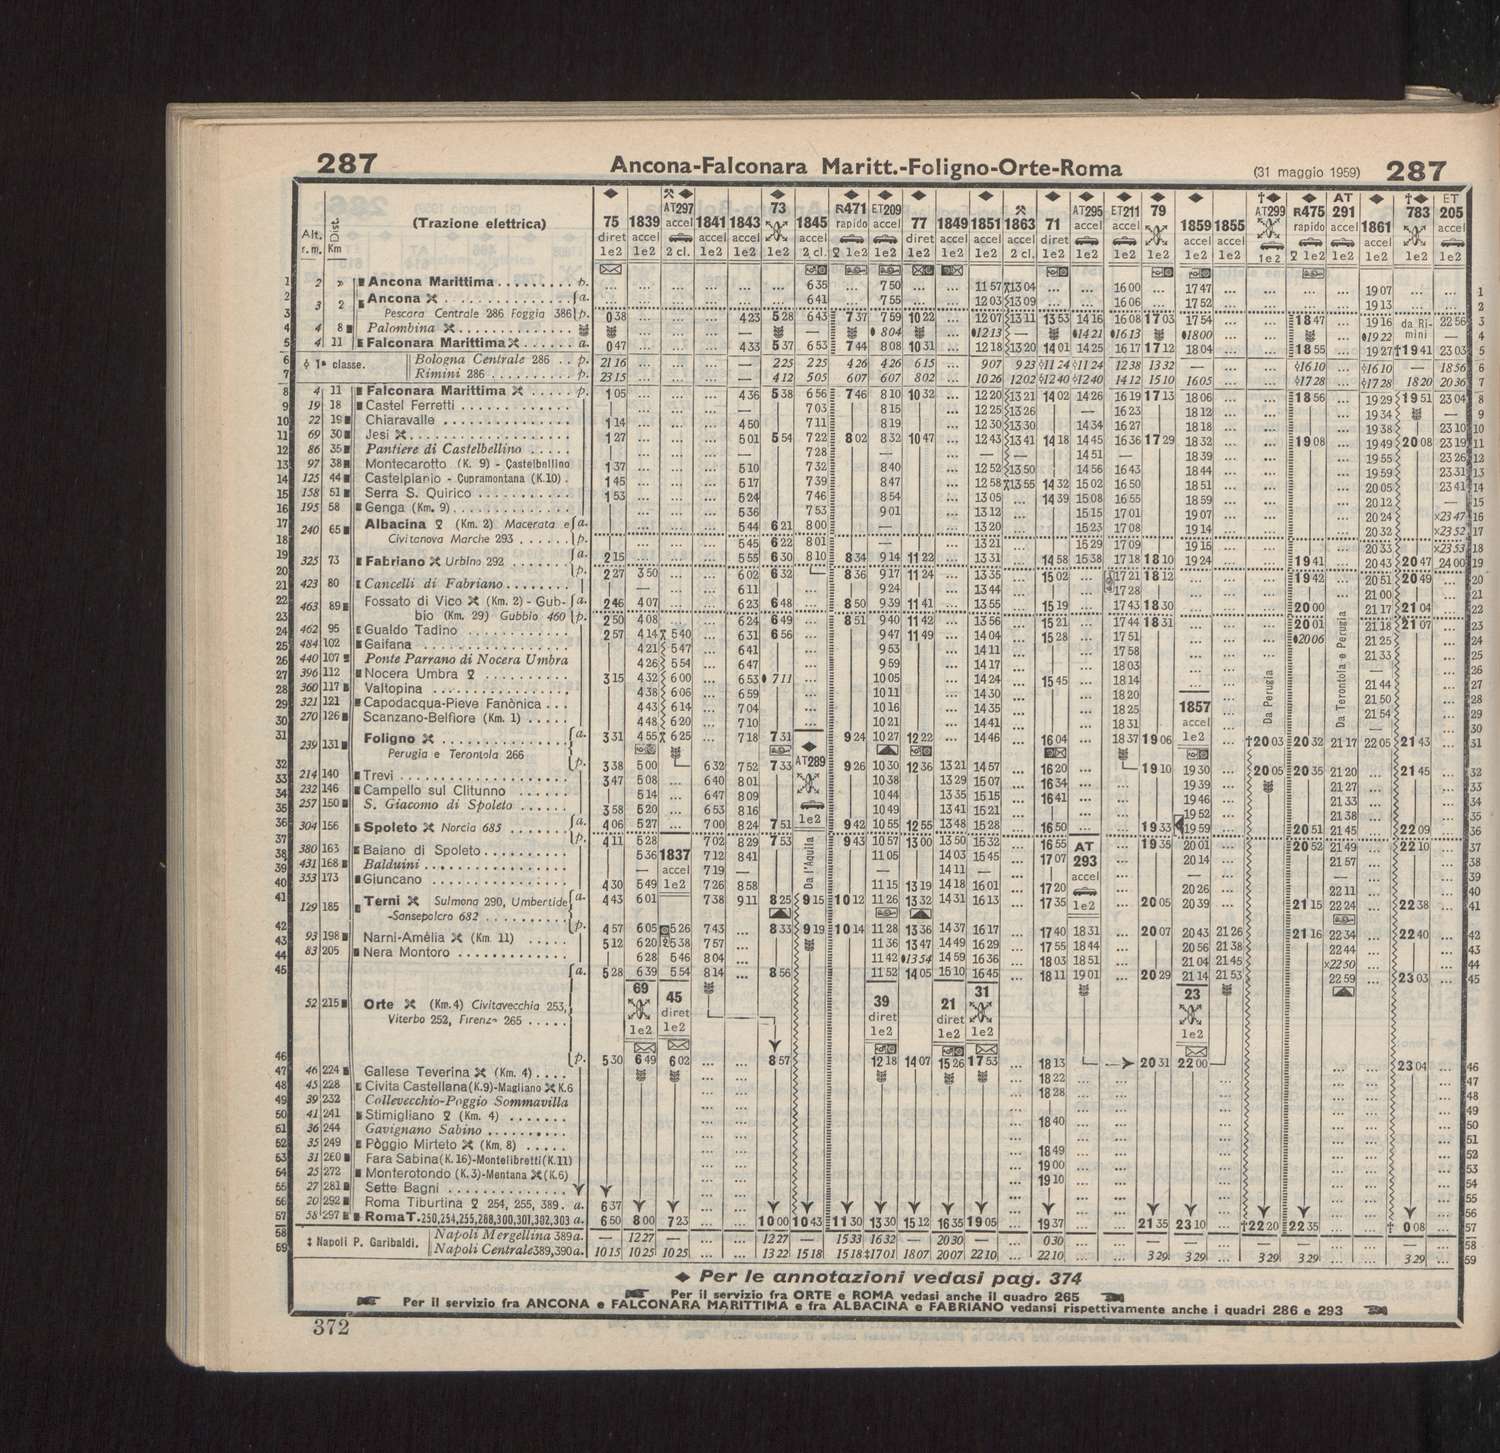 287 Ancona-Falconara Maritt.-Foligno-Orte-Roma (31 maggio 1959) 287
Alt. r. m. Dist. Km (Trazione elettrica)
75 diret 1e2
1839 accel 1e2
AT297 accel 2 cl.
1841 accel 1e2
1843 accel 1e2
73 1e2
1845 accel 2 cl.
R471 rapido 1e2
ET209 accel 1e2
77 diret 1e2
1849 accel 1e2
1851 accel 1e2
1863 accel 2 cl.
71 diret 1e2
AT295 accel 1e2
ET211 accel 1e2
79 1e2
1859 accel 1e2
1855 accel 1e2
AT299 1e2
R475 rapido 1e2
AT 291 accel 1e2
1861 accel 1e2
783 1e2
ET 205 accel 1e2
1 2 » Ancona Marittima p. 6 35 7 50 11 57 13 04 16 00 17 47 19 07 1
2 3 2 Ancona a. 6 41 7 55 12 03 13 09 16 06 17 52 19 13 2
3 Pescara Centrale 286 Foggia 386 p. 0 38 4 23 5 28 6 43 7 37 7 59 10 22 12 07 13 11 13 53 14 16 16 08 17 03 17 54 18 47 19 16 da Ri- 22 56 3
4 4 8 Palombina 8 04 12 13 14 21 16 13 18 00 19 22 mini 4
5 4 11 Falconara Marittima a. 0 47 4 33 5 37 6 53 7 44 8 08 10 31 12 18 13 20 14 01 14 25 16 17 17 12 18 04 18 55 19 27 †19 41 23 03 5
6 1ª classe. Bologna Centrale 286 p. 21 16 2 25 2 25 4 26 4 26 6 15 9 07 9 23 11 24 11 24 12 38 13 32 — 16 10 16 10 — 18 56 6
7 Rimini 286 p. 23 15 4 12 5 05 6 07 6 07 8 02 10 26 12 02 12 40 12 40 14 12 15 10 16 05 17 28 17 28 18 20 20 36 7
8 4 11 Falconara Marittima p. 1 05 4 36 5 38 6 56 7 46 8 10 10 32 12 20 13 21 14 02 14 26 16 19 17 13 18 06 18 56 19 29 19 51 23 04 8
9 19 18 Castel Ferretti 7 03 8 15 12 25 13 26 — 16 23 18 12 19 34 — 9
10 22 19 Chiaravalle 1 14 4 50 7 11 8 19 12 30 13 30 14 34 16 27 18 18 19 38 23 10 10
11 69 30 Jesi 1 27 5 01 5 54 7 22 8 02 8 32 10 47 12 43 13 41 14 18 14 45 16 36 17 29 18 32 19 08 19 49 20 08 23 19 11
12 86 35 Pantiere di Castelbellino 7 28 — — 14 51 — 18 39 19 55 23 26 12
13 97 38 Montecarotto (K. 9) - Castelbellino 1 37 5 10 7 32 8 40 12 52 13 50 14 56 16 43 18 44 19 59 23 31 13
14 125 44 Castelplanio - Cupramontana (K.10) 1 45 5 17 7 39 8 47 12 58 13 55 14 32 15 02 16 50 18 51 20 05 23 41 14
15 158 51 Serra S. Quirico 1 53 5 24 7 46 8 54 13 05 14 39 15 08 16 55 18 59 20 12 — 15
16 195 58 Genga (Km. 9) 5 36 7 53 9 01 13 12 15 15 17 01 19 07 20 24 ×23 47 16
17 240 65 Albacina (Km. 2) Macerata e a. 5 44 6 21 8 00 — 13 20 15 23 17 08 19 14 20 32 ×23 52 17
18 Civitanova Marche 293 p. 5 45 6 22 8 01 13 21 15 29 17 09 19 15 20 33 ×23 53 18
19 325 73 Fabriano Urbino 292 a. 2 15 5 55 6 30 8 10 8 34 9 14 11 22 13 31 14 58 15 38 17 18 18 10 19 24 19 41 20 43 20 47 24 00 19
20 p. 2 27 3 50 6 02 6 32 8 36 9 17 11 24 13 35 15 02 17 21 18 12 19 42 20 51 20 49 20
21 423 80 Cancelli di Fabriano — 6 11 9 24 13 44 17 28 21 00 21
22 463 89 Fossato di Vico (Km. 2) - Gub- a. 2 46 4 07 6 23 6 48 8 50 9 39 11 41 13 55 15 19 17 43 18 30 20 00 21 17 21 04 22
23 bio (Km. 29) Gubbio 460 p. 2 50 4 08 6 24 6 49 8 51 9 40 11 42 13 56 15 21 17 44 18 31 20 01 21 18 21 07 23
24 462 95 Gualdo Tadino 2 57 4 14 5 40 6 31 6 56 9 47 11 49 14 04 15 28 17 51 20 06 21 25 24
25 484 102 Gaifana 4 21 5 47 6 41 9 53 14 11 17 58 21 33 25
26 440 107 Ponte Parrano di Nocera Umbra 4 26 5 54 6 47 9 59 14 17 18 03 — 26
27 396 112 Nocera Umbra 3 15 4 32 6 00 6 53 7 11 10 05 14 24 15 45 18 14 21 44 27
28 360 117 Valtopina 4 38 6 06 6 59 10 11 14 30 18 20 21 50 28
29 321 121 Capodacqua-Pieve Fanònica 4 43 6 14 7 04 10 16 14 35 18 25 1857 21 54 29
30 270 126 Scanzano-Belfiore (Km. 1) 4 48 6 20 7 10 10 21 14 41 18 31 accel 30
31 239 131 Foligno a. 3 31 4 55 6 25 7 18 7 31 9 24 10 27 12 22 14 46 16 04 18 37 19 06 1e2 †20 03 20 32 21 17 22 05 21 43 31
Perugia e Terontola 266
AT289 1e2 Da l'Aquila
Da Perugia
Da Terontola e Perugia
32 p. 3 38 5 00 6 32 7 52 7 33 9 26 10 30 12 36 13 21 14 57 16 20 19 10 19 30 20 05 20 35 21 20 21 45 32
33 214 140 Trevi 3 47 5 08 6 40 8 01 10 38 13 29 15 07 16 34 19 39 21 27 33
34 232 146 Campello sul Clitunno 5 14 6 47 8 09 10 44 13 35 15 15 16 41 19 46 21 33 34
35 257 150 S. Giacomo di Spoleto 3 58 5 20 6 53 8 16 10 49 13 41 15 21 19 52 21 38 35
36 304 156 Spoleto Norcia 685 a. 4 06 5 27 7 00 8 24 7 51 9 42 10 55 12 55 13 48 15 28 16 50 19 33 19 59 20 51 21 45 22 09 36
37 p. 4 11 5 28 7 02 8 29 7 53 9 43 10 57 13 00 13 50 15 32 16 55 19 35 20 01 20 52 21 49 22 10 37
38 380 163 Baiano di Spoleto 5 36 1837 7 12 8 41 11 05 14 03 15 45 17 07 AT 293 20 14 21 57 38
39 431 168 Balduini — accel 7 19 — 14 11 — accel — — 39
40 353 173 Giuncano 4 30 5 49 1e2 7 26 8 58 11 15 13 19 14 18 16 01 17 20 20 26 22 11 40
41 129 185 Terni Sulmona 290, Umbertide a. 4 43 6 01 7 38 9 11 8 25 9 15 10 12 11 26 13 32 14 31 16 13 17 35 1e2 20 05 20 39 21 15 22 24 22 38 41
-Sansepolcro 682
42 p. 4 57 6 05 5 26 7 43 8 33 9 19 10 14 11 28 13 36 14 37 16 17 17 40 18 31 20 07 20 43 21 26 21 16 22 34 22 40 42
43 93 198 Narni-Amèlia (Km. 11) 5 12 6 20 5 38 7 57 11 36 13 47 14 49 16 29 17 55 18 44 20 56 21 38 22 44 43
44 83 205 Nera Montoro 6 28 5 46 8 04 11 42 13 54 14 59 16 36 18 03 18 51 21 04 21 45 ×22 50 44
45 a. 5 28 6 39 5 54 8 14 8 56 11 52 14 05 15 10 16 45 18 11 19 01 20 29 21 14 21 53 22 59 23 03 45
52 215 Orte (Km. 4) Civitavecchia 253, 69 1e2 45 diret 1e2 39 diret 1e2 21 diret 1e2 31 1e2 23 1e2
Viterbo 252, Firenze 265
46 p. 5 30 6 49 6 02 8 57 12 18 14 07 15 26 17 53 18 13 20 31 22 00 23 04 46
47 46 224 Gallese Teverina (Km. 4) 18 22 47
48 45 228 Civita Castellana(K.9)-Magliano K.6 18 28 48
49 39 232 Collevecchio-Poggio Sommavilla 49
50 41 241 Stimigliano (Km. 4) 18 40 50
51 36 244 Gavignano Sabino 51
52 35 249 Pòggio Mirteto (Km. 8) 18 49 52
53 31 260 Fara Sabina(K.16)-Montelibretti(K.11) 19 00 53
54 25 272 Monterotondo (K.3)-Mentana (K.6) 19 10 54
55 27 281 Sette Bagni 55
56 20 292 Roma Tiburtina 254, 255, 389. a. 6 37 56
57 58 297 Roma T. 250,254,255,288,300,301,302,303 a. 6 50 8 00 7 23 10 00 10 43 11 30 13 30 15 12 16 35 19 05 19 37 21 35 23 10 †22 20 22 35 † 0 08 57
58 ‡ Napoli P. Garibaldi. Napoli Mergellina 389 a. — 12 27 — 12 27 — 15 33 16 32 — 20 30 — 0 30 58
59 Napoli Centrale 389,390 a. 10 15 10 25 10 25 13 22 15 18 15 18 ‡17 01 18 07 20 07 22 10 22 10 3 29 3 29 3 29 3 29 3 29 59
◆ Per le annotazioni vedasi pag. 374
Per il servizio fra ORTE e ROMA vedasi anche il quadro 265
Per il servizio fra ANCONA e FALCONARA MARITTIMA e fra ALBACINA e FABRIANO vedansi rispettivamente anche i quadri 286 e 293
372